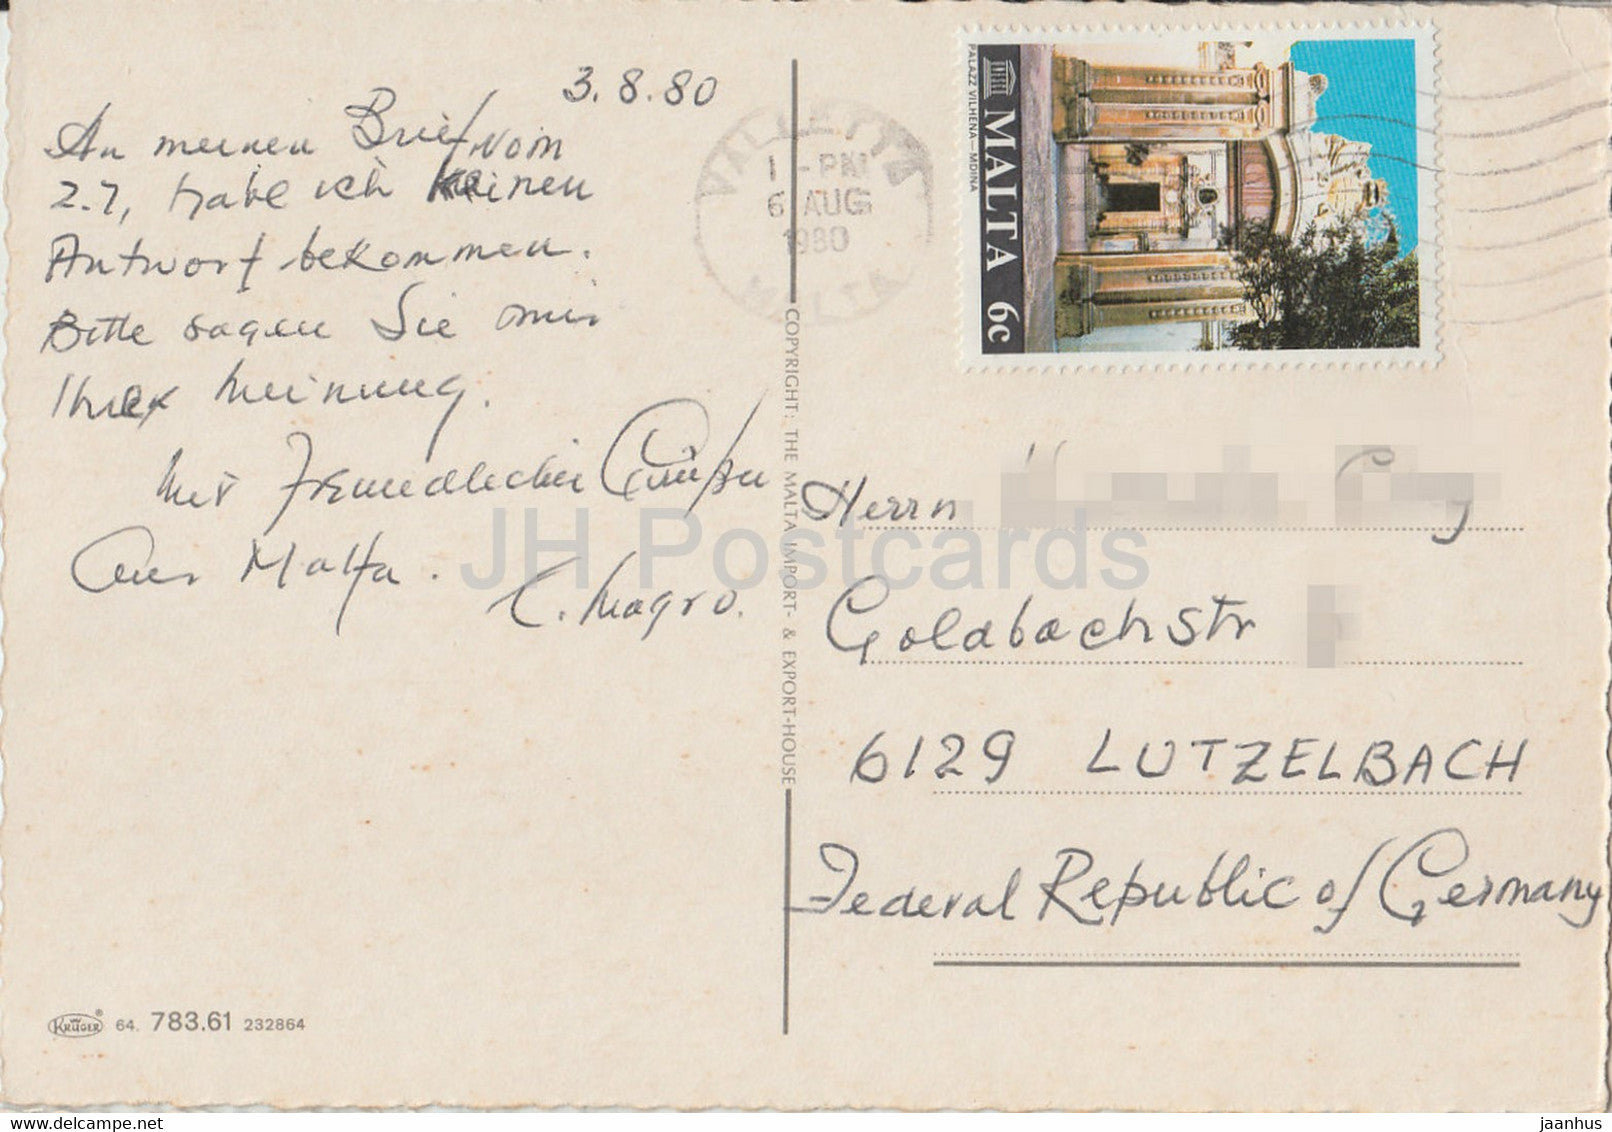 3.8.80
An meinen Brief vom
2.7, habe ich keinen
Antwort bekommen.
Bitte sagen Sie mir
Ihrer Meinung.
Mit Freundlichen Grüßen
Aus Malta.
C. Magro.
VALLETTA
1 - PM
6 AUG
1980
MALTA
PALAZZ VILHENA—MDINA
UNESCO
MALTA 6c
COPYRIGHT: THE MALTA IMPORT- & EXPORT-HOUSE
Herrn
Goldbachstr
6129 LUTZELBACH
Federal Republic of Germany
KRÜGER® 64. 783.61 232864
JH Postcards
www.delcampe.net
jaanhus